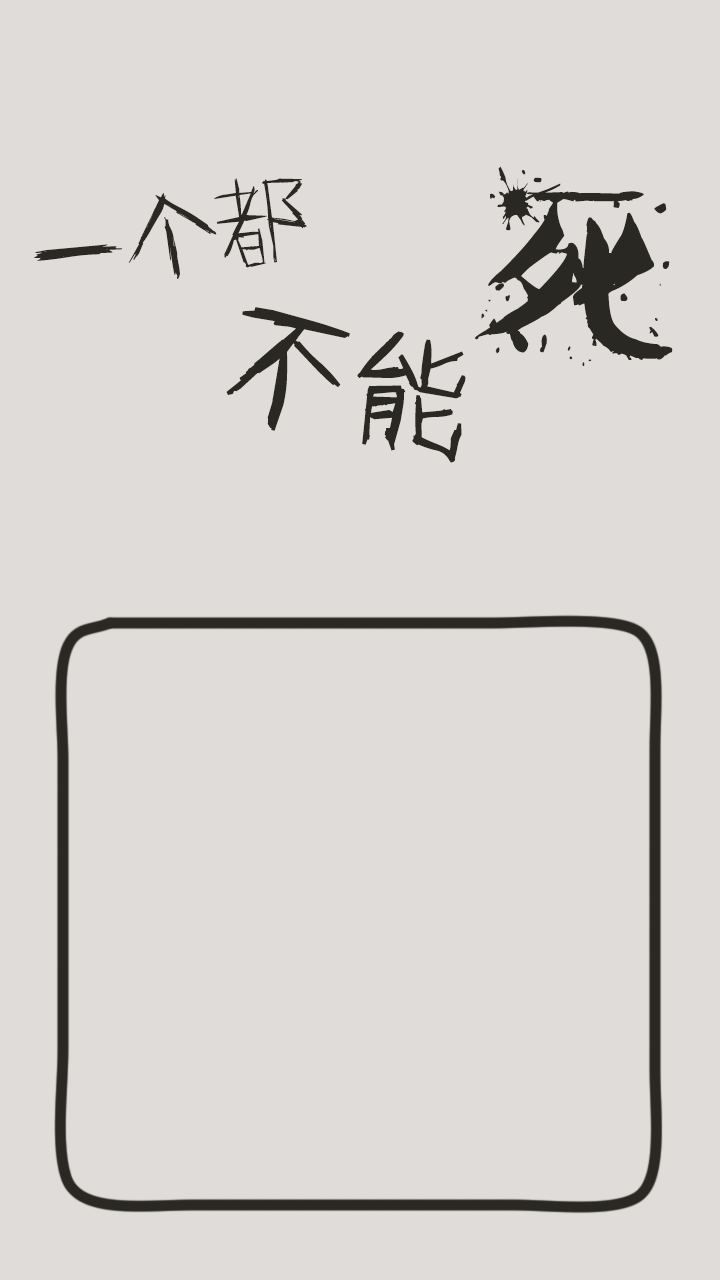 一个都
不能
死